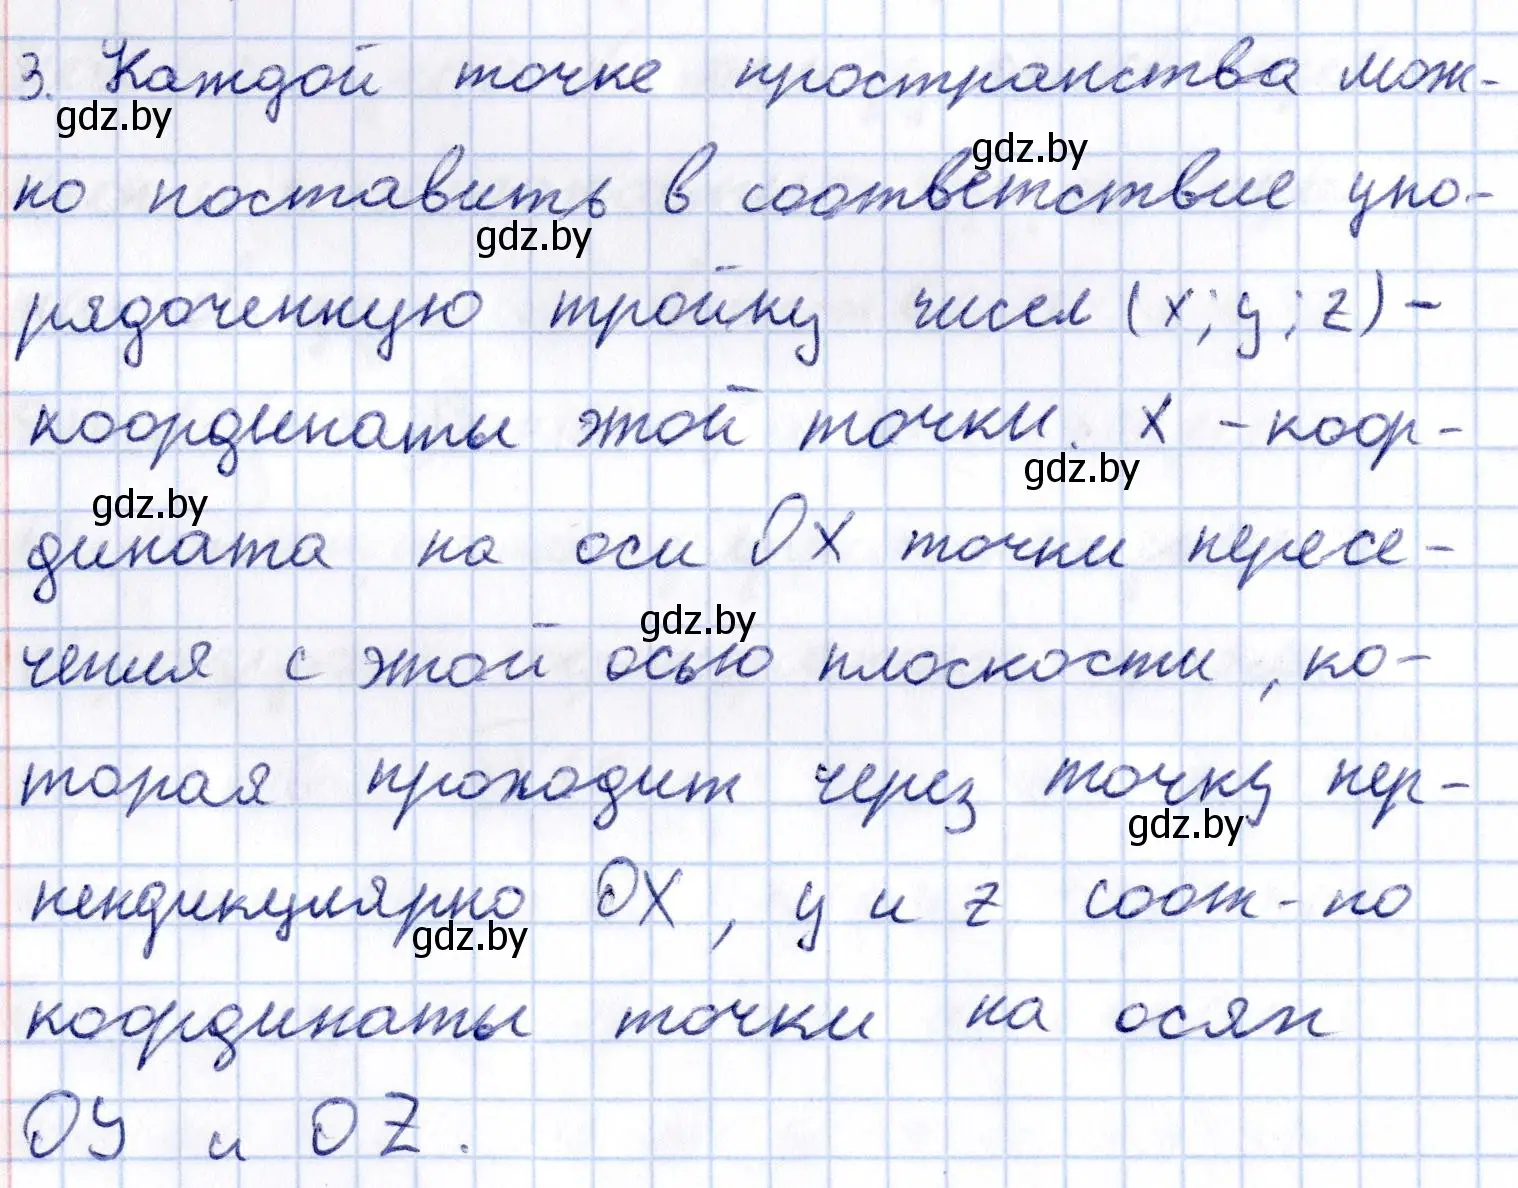 3. Каждой точке пространства мож-
но поставить в соответствие упо-
рядоченную тройку чисел (x; y; z) -
координаты этой точки. X - коор-
дината на оси OX точки пересе-
чения с этой осью плоскости, ко-
торая проходит через точку пер-
пендикулярно OX, y и z соот-но
координаты точки на осях
OY и OZ.
gdz.by
gdz.by
gdz.by
gdz.by
gdz.by
gdz.by
gdz.by
gdz.by